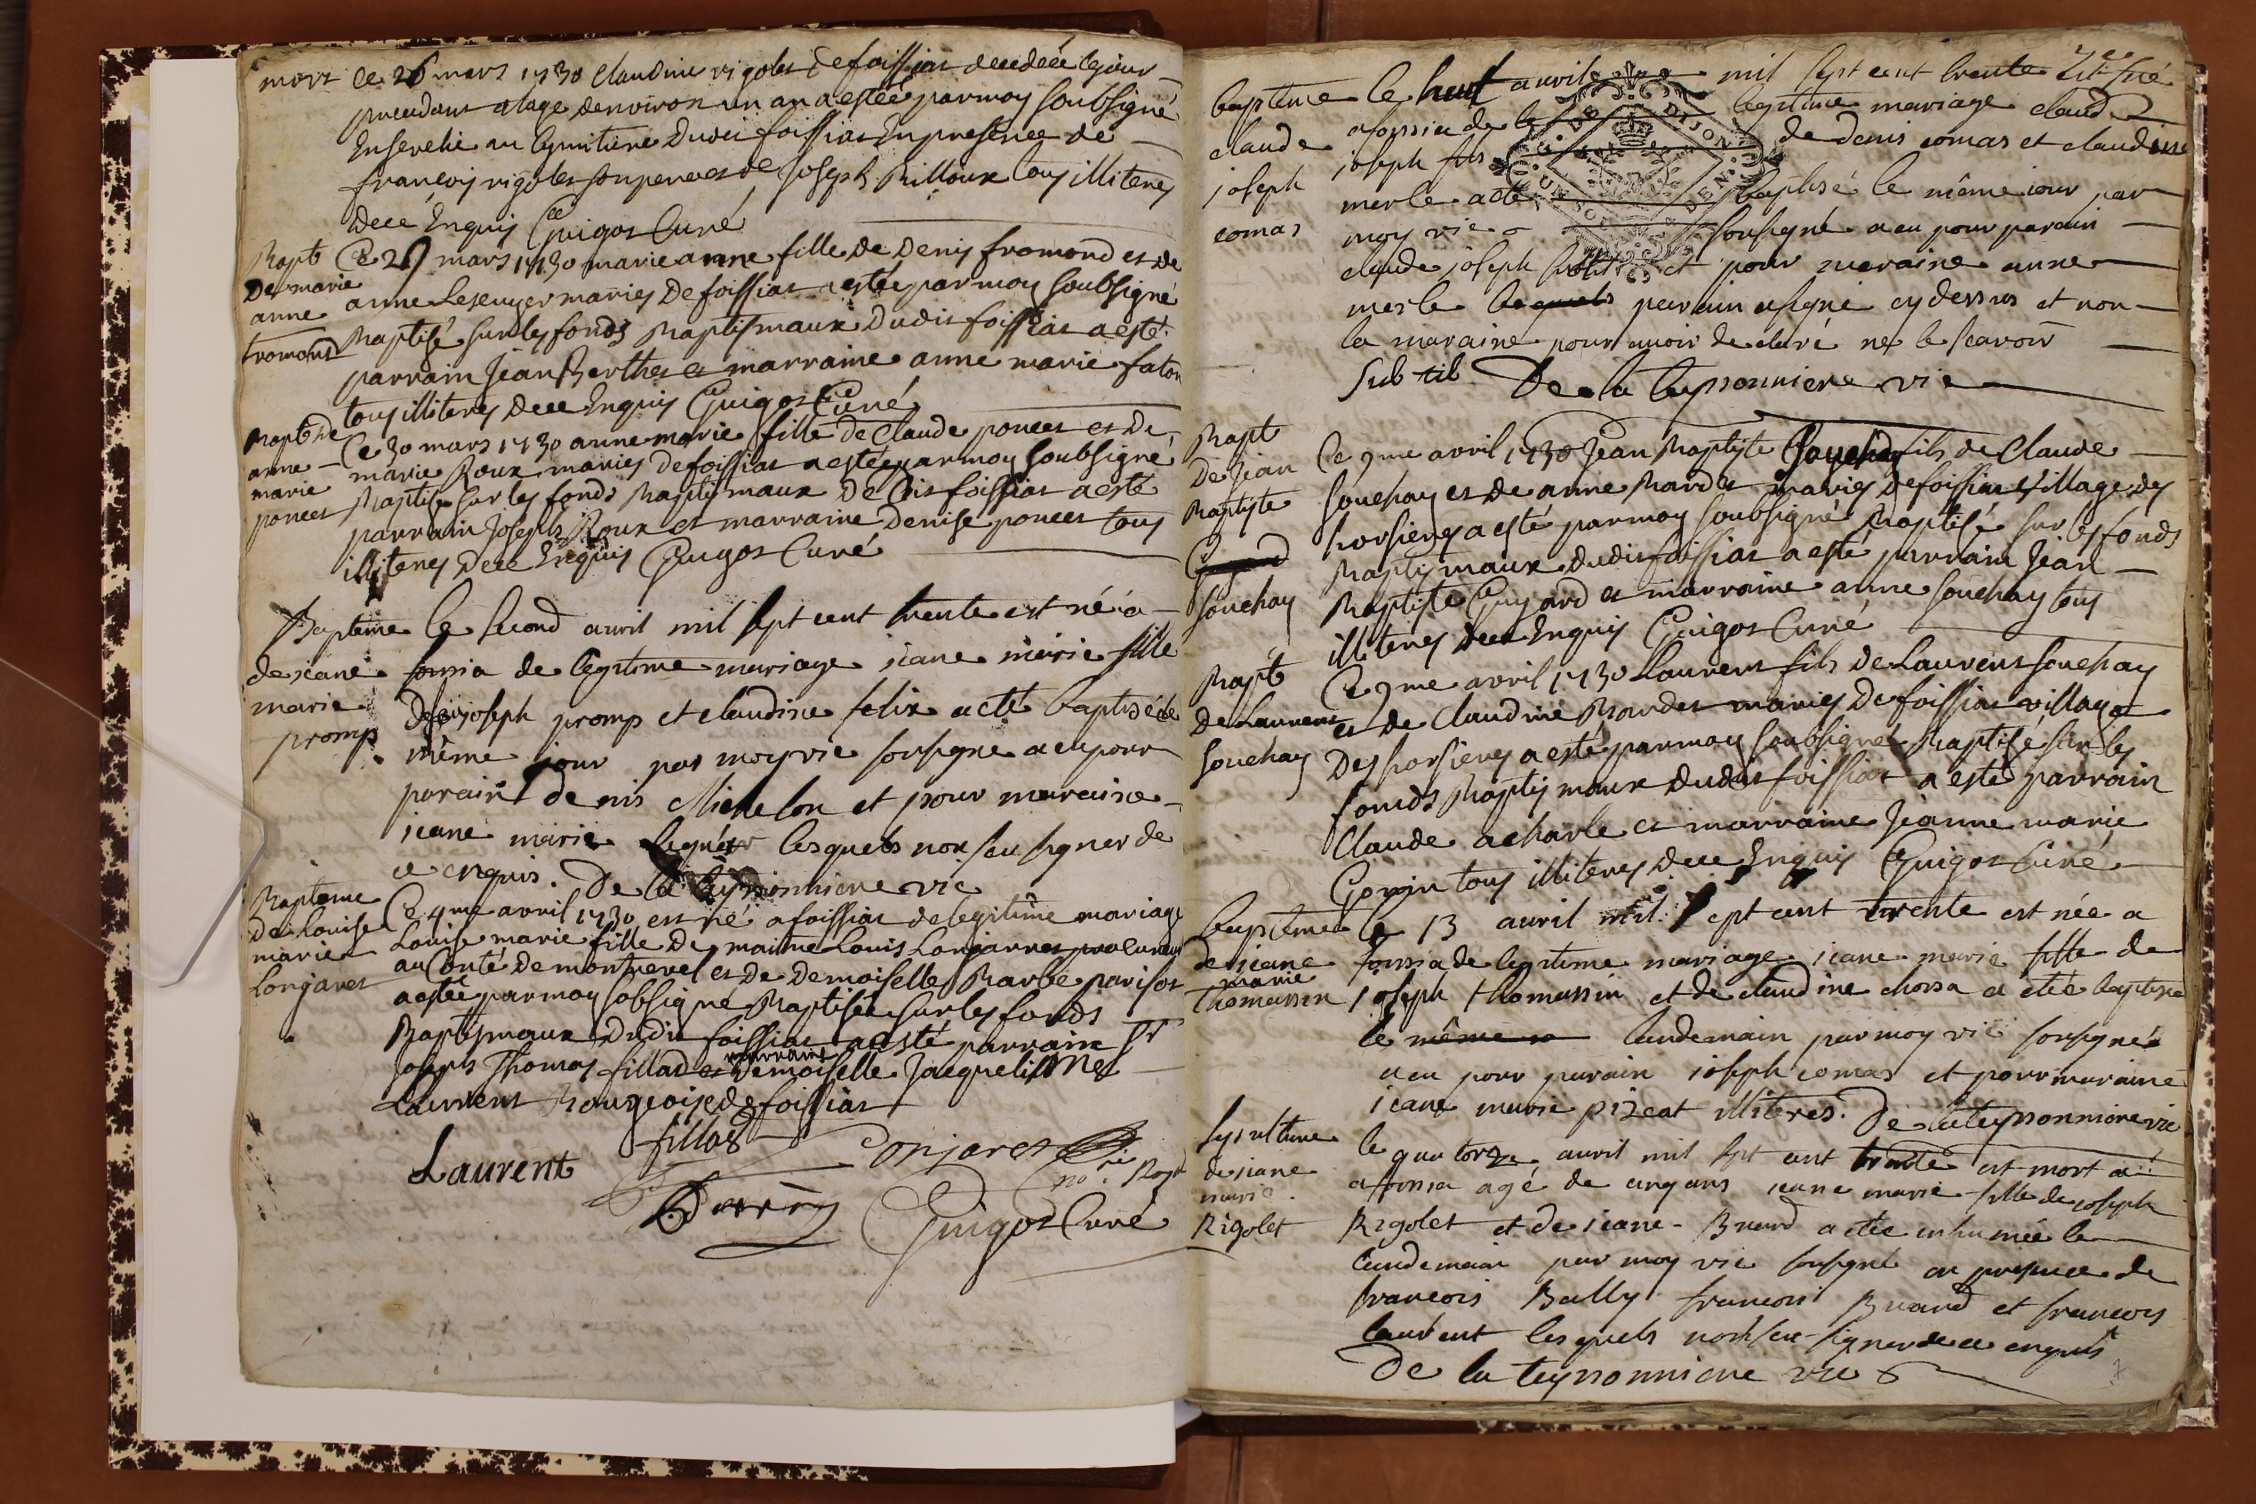 mort Ce 26 mars 1730 Claudine rigolet de foissiat decedée le jour
precedant alage denviron un an a estée par moy soubsigné
Enservelie au Cymitiere dudit foissiat En presence de
françois rigolet son pere et de Joseph Rilloux tous illiterez
dece Enquis Guigot Curé
Bapt Ce 29 mars 1730 marie anne fille de Denis fromond et de
De marie
anne anne Leseuyer mariez De foissiat a estée par moy soubsigné
fromond Baptisé sur les fonds Baptismaux dudit foissiat a esté
parrain Jean Berthet et marraine anne marie faton
tous illiterez dece Enquis Guigot Curé
Bapt de Ce 30 mars 1730 anne marie fille de Claude poncet et de
anne
marie marie Roux mariez de foissiat a estée par moy soubsigné
poncet Baptisé sur les fonds Baptismaux de dit foissiat a esté
parrain Joseph Roux et marraine Denise poncet tous
illiterez dece Enquis Guigot Curé
Bapteme le second avril mil sept cent trente est né a
de jeane foissia de legitime mariage jeane marie fille
marie de joseph promp et claudine felix a eté baptisé le
promp même jour par moy vic sousigne a eu pour
parain denis Michelon et pour maraine
jeane marie lesquels non seu signer de
ce enquis. De la teyssonniere vic
Bapteme Ce 4me avril 1730 est né a foissiat de legitime mariage
de Louise
marie Louise marie fille de maitre Louis Lonjarret procureur
Lonjaret au Conté de montrevel et de Demoiselle Barbe parisot
a estée par moy sobsigné Baptisée sur les fonds
Baptismaux dudit foissiat a esté parrain Sr
Joseph Thomas fillod et marraine Demoiselle Jacqueline
Laurent Bourgeoise de foissiat
fillod
Laurent Lonjaret
no.re Royl
Guigot Curé
bapteme le huit avril mil sept cent trente est né
claude a foissia de legitime mariage claude
joseph joseph fils de denis comas et claudine
comas merle a eté baptisé le même jour par
moy vic sousigné a eu pour parain
claude joseph et pour maraine anne
merle lesquels parain a signé cy dessus et non
la maraine pour avoir declaré ne le scavoir
De la teyssonniere vic
Bapt Ce 9me avril 1730 Jean Baptiste Souchay fils de Claude
De Jean
Baptiste Souchay et de anne Bardet mariez de foissiat village des
Guyard
Souchay horsieres a esté par moy soubsigné Baptisé sur les fonds
Baptismaux dudit foissiat a esté parrain Jean
Baptiste Guyard et marraine anne Souchay tous
illiterez dece Enquis Guigot Curé
Bapt Ce 9me avril 1730 Laurent fils de Laurent Souchay
De Laurent et de Claudine Bardet mariez de foissiat village
Souchay Des horsieres a esté par moy soubsigné Baptisé sur les
fonds Baptismaux dudit foissiat a esté parrain
Claude acharle et marraine Jeanne marie
Gonin tous illiterez dece Enquis Guigot Curé
bapteme le 13 avril mil sept cent trente est née a
de jeane foissia de legitime mariage jeane marie fille de
marie
thomassin joseph thomassin et de claudine chossa a eté baptisé
le même landemain par moy vic sousigné
a eu pour parain joseph comas et pour maraine
jeane marie pizcat illiteres. De la teyssonniere vic
sepulture le quatorze avril mil sept cent trente est mort a
de jeane a foissia agé de cinq ans jeane marie fille de joseph
marie
Rigolet Rigolet et de jeane Buard a etée inhumée le
landemain par moy vic sousigné en presence de
francois Bally francois Buard et francois
laurent lesquels non seu signer de ce enquis
De la teyssonniere vic